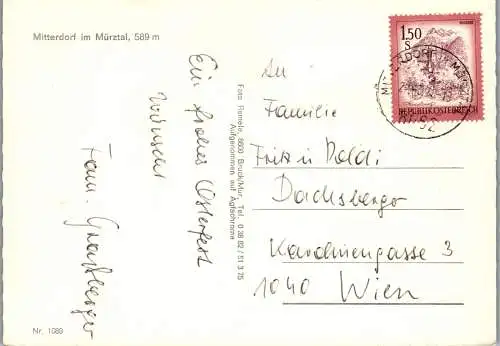 Mitterdorf im Mürztal, 589 m
Ein frohes Osterfest
wünscht
Fam.
Foto Remele, 8600 Bruck/Mur, Tel. 0 38 62 / 51 3 75
Aufgenommen auf Agfachrome
Nr. 1089
1.50
S
REPUBLIK ÖSTERREICH
MITTERDORF
An
Familie
Fritz u Poldi
Dachsberger
Kardinengasse 3
1040 Wien